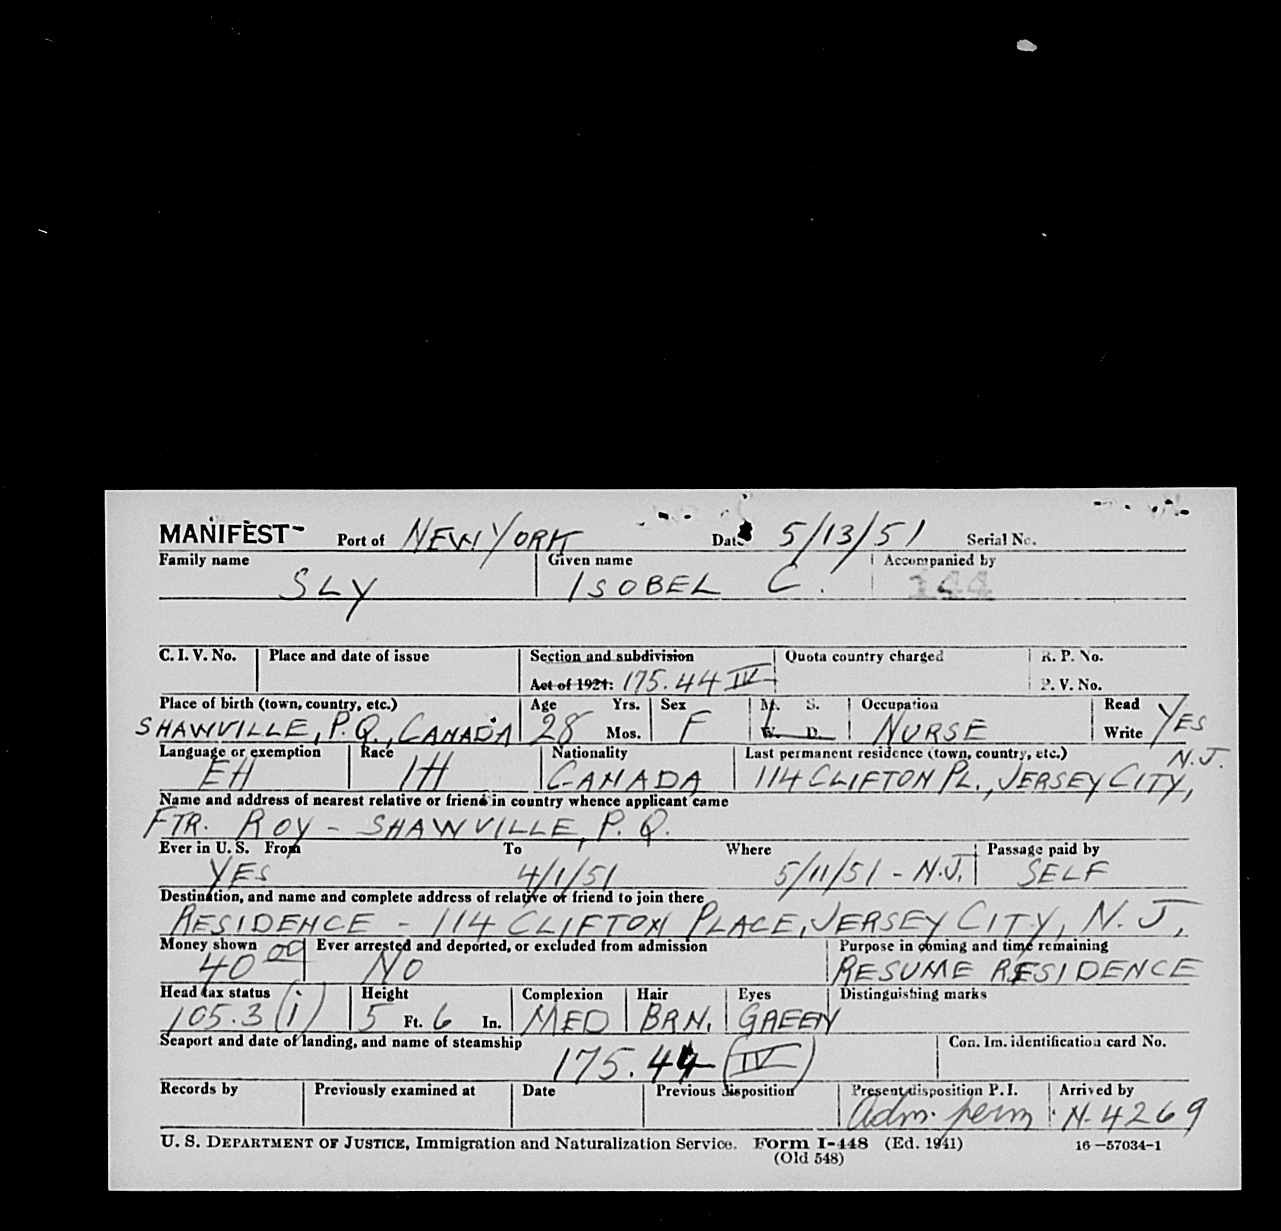 MANIFEST Port of NEW YORK Date 5/13/51 Serial No.
Family name Given name Accompanied by
SLY ISOBEL C. 144
C. I. V. No. Place and date of issue Section and subdivision Quota country charged R. P. No.
Act of 1921: 175.44 IV P. V. No.
Place of birth (town, country, etc.) Age Yrs. Sex M. S. Occupation Read
SHAWVILLE, P.Q., CANADA 28 Mos. F W. D. NURSE Write YES
Language or exemption Race Nationality Last permanent residence (town, country, etc.) N.J.
EH IH CANADA 114 CLIFTON PL., JERSEY CITY,
Name and address of nearest relative or friend in country whence applicant came
FTR. ROY - SHAWVILLE, P.Q.
Ever in U. S. From To Where Passage paid by
YES 4/1/51 5/11/51 - N.J. SELF
Destination, and name and complete address of relative or friend to join there
RESIDENCE - 114 CLIFTON PLACE, JERSEY CITY, N.J,
Money shown Ever arrested and deported, or excluded from admission Purpose in coming and time remaining
40 00 NO RESUME RESIDENCE
Head tax status Height Complexion Hair Eyes Distinguishing marks
105.3 (i) 5 Ft. 6 In. MED BRN. GREEN
Seaport and date of landing, and name of steamship Con. Im. identification card No.
175.44 (IV)
Records by Previously examined at Date Previous disposition Present disposition P. I. Arrived by
Adm. perm N-4269
U. S. DEPARTMENT OF JUSTICE, Immigration and Naturalization Service. Form I-448 (Ed. 1941) 16—57034-1
(Old 548)